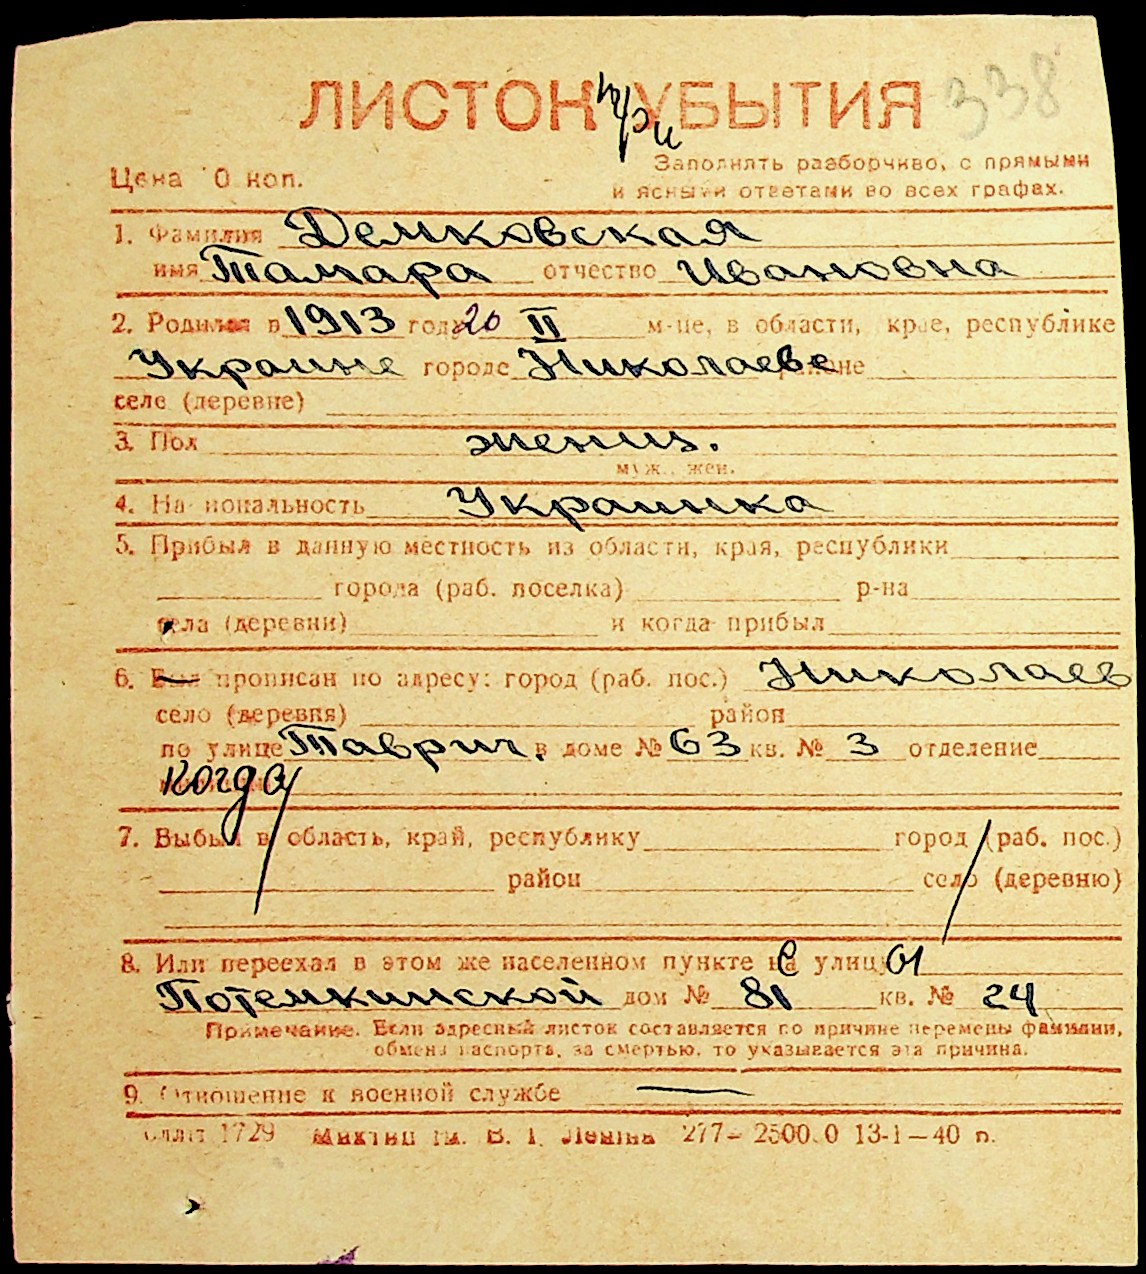 338
ЛИСТОК при УБЫТИЯ
Заполнять разборчиво, с прямыми
Цена 10 коп.
и ясными ответами во всех графах.
1. Фамилия Демковская
имя Тамара отчество Ивановна
2. Родился в 1913 году 20 II м-це, в области, крае, республике
Украине городе Николаеве районе
селе (деревне)
3. Пол женщ.
муж., жен.
4. Национальность Украинка
5. Прибыл в данную местность из области, края, республики
города (раб. поселка) р-на
села (деревни) и когда прибыл
6. Был прописан по адресу: город (раб. пос.) Николаев
село (деревня) район
по улице Таврич. в доме № 63 кв. № 3 отделение
когда
7. Выбыл в область, край, республику город (раб. пос.)
район село (деревню)
8. Или переехал в этом же населенном пункте с улицы
Потемкинской дом № 81 кв. № 24
Примечание. Если адресный листок составляется по причине перемены фамилии,
обмена паспорта, за смертью, то указывается эта причина.
9. Отношение к военной службе —
1729 им. В. І. Леніна 277— 2500.0 13-1—40 п.